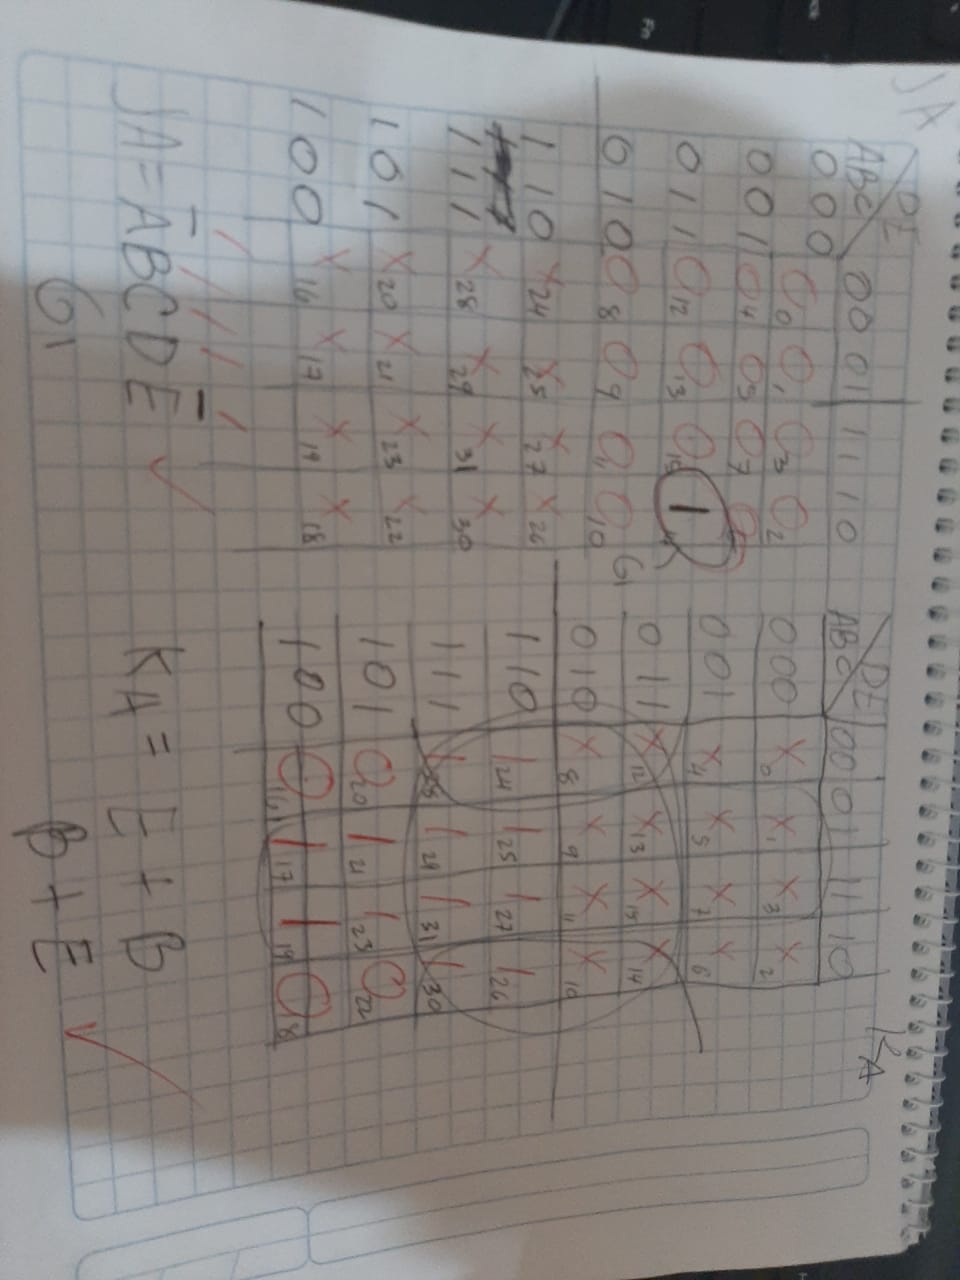 Fn
JA
DE
ABC 00 01 11 10
000 0₀ 0₁ 0₃ 0₂
001 0₄ 0₅ 0₇
011 0₁₂ 0₁₃ 0₁₅ 1₁₄
010 0₈ 0₉ 0₁₁ 0₁₀ G1
110 X₂₄ X₂₅ X₂₇ X₂₆
111 X₂₈ X₂₉ X₃₁ X₃₀
101 X₂₀ X₂₁ X₂₃ X₂₂
100 X₁₆ X₁₇ X₁₉ X₁₈
JA = A̅BCDE̅ ✓
G1
KA
DE
ABC 00 01 11 10
000 X₀ X₁ X₃ X₂
001 X₄ X₅ X₇ X₆
011 X₁₂ X₁₃ X₁₅ X₁₄
010 X₈ X₉ X₁₁ X₁₀
110 1₂₄ 1₂₅ 1₂₇ 1₂₆
111 1₂₈ 1₂₉ 1₃₁ 1₃₀
101 0₂₀ 1₂₁ 1₂₃ 0₂₂
100 0₁₆ 1₁₇ 1₁₉ 0₈
KA = E + B
B + E ✓